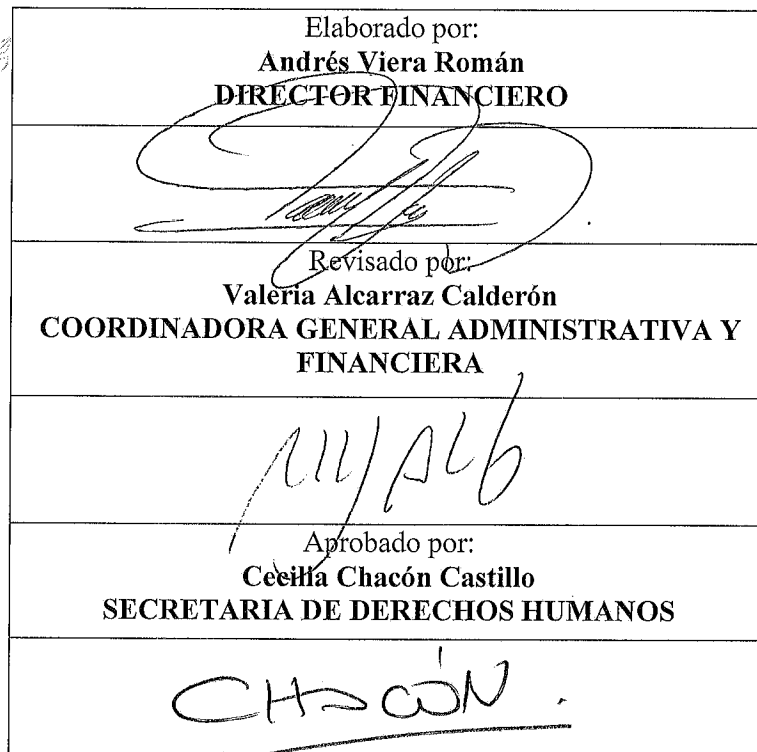 Elaborado por:
Andrés Viera Román
DIRECTOR FINANCIERO
Revisado por:
Valeria Alcarraz Calderón
COORDINADORA GENERAL ADMINISTRATIVA Y
FINANCIERA
Aprobado por:
Cecilia Chacón Castillo
SECRETARIA DE DERECHOS HUMANOS
CHACÓN.